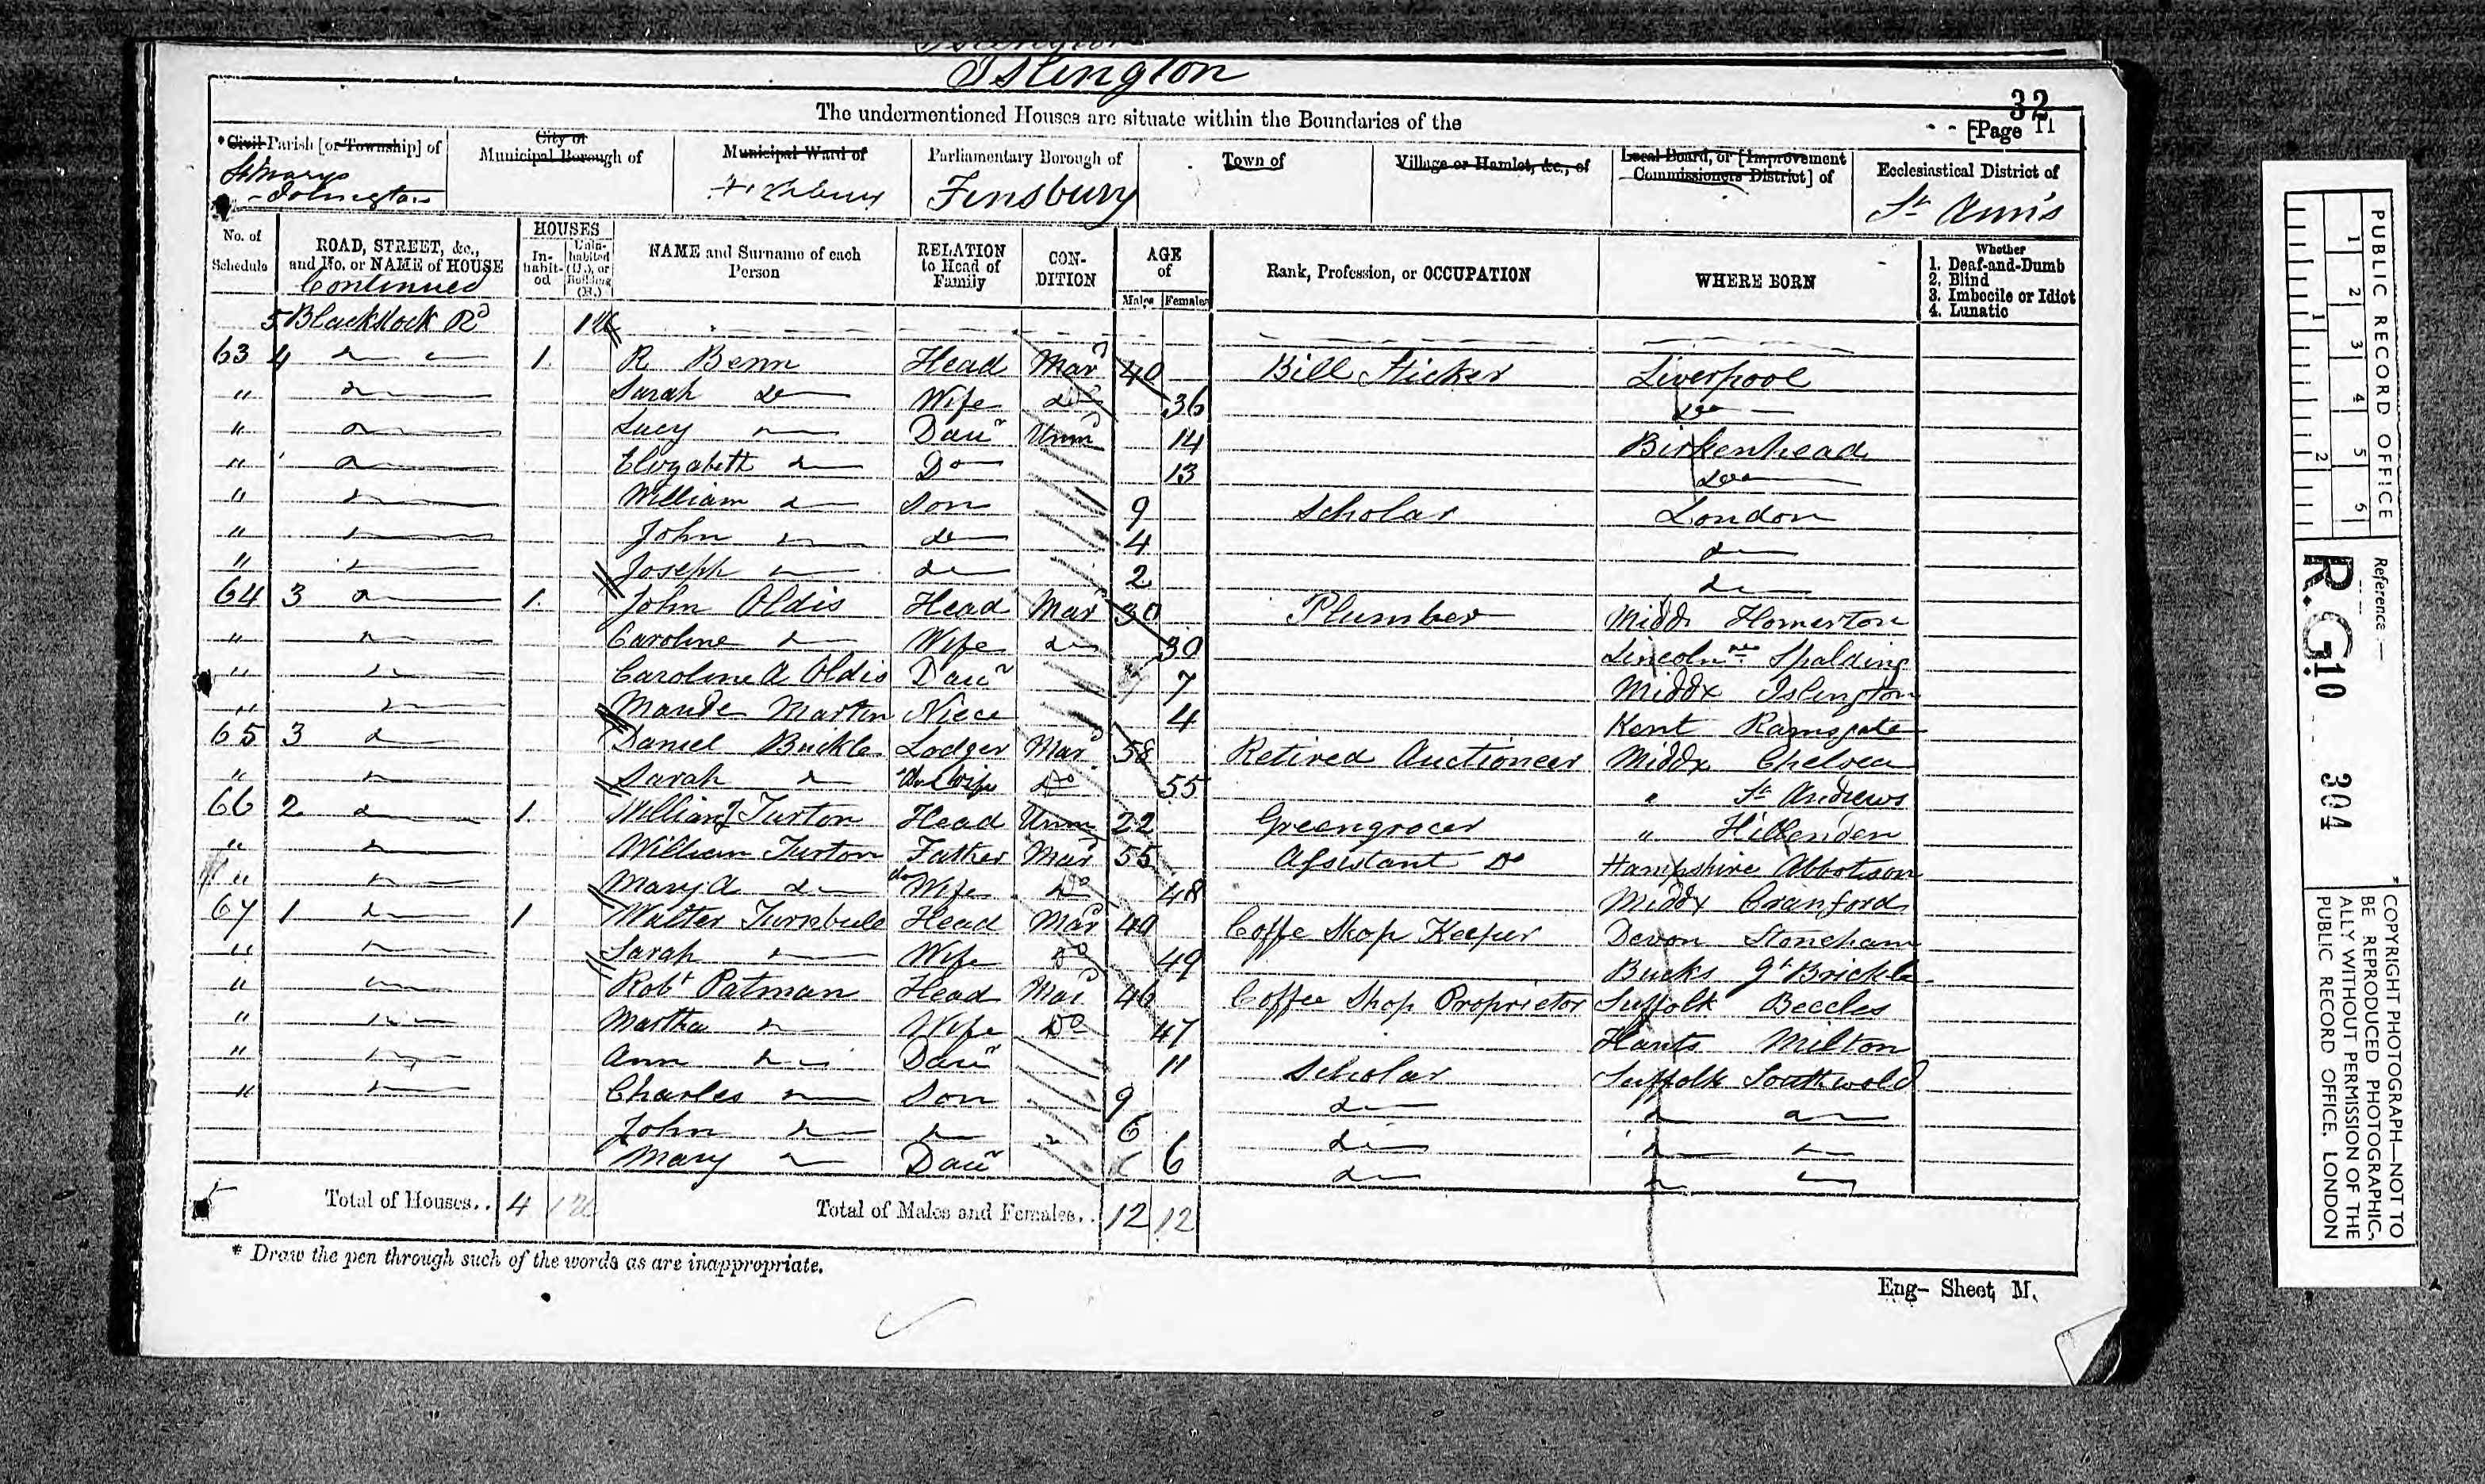 Islington
Islington
32
The undermentioned Houses are situate within the Boundaries of the
[Page 11
*Civil Parish [or Township] of
City of
Municipal Borough of
Municipal Ward of
Parliamentary Borough of
Town of
Village or Hamlet, &c., of
Local Board, or [Improvement
Commissioners District] of
Ecclesiastical District of
St Marys
Islington
Finsbury
St Ann's
No. of
Schedule
ROAD, STREET, &c.,
and No. or NAME of HOUSE
Continued
HOUSES
In-
habit-
ed
Unin-
habited
(U.), or
Building
(B.)
NAME and Surname of each
Person
RELATION
to Head of
Family
CON-
DITION
AGE
of
Males Females
Rank, Profession, or OCCUPATION
WHERE BORN
Whether
1. Deaf-and-Dumb
2. Blind
3. Imbecile or Idiot
4. Lunatic
5 Blackstock Rd 1 U
63 4 do 1 R Benn Head Mard 40 Bill Sticker Liverpool
" do Sarah do Wife do 36 do
" do Lucy do Daur Unmd 14 Birkenhead
" do Elizabeth do Do 13 do
" do William do Son 9 Scholar London
" do John do do 4 do
" do Joseph do do 2 do
64 3 do 1 John Oldis Head Mar 30 Plumber Middx Homerton
" do Caroline do Wife do 30 Lincolnre Spalding
" do Caroline A Oldis Daur 7 Middx Islington
" do Maude Martin Niece 4 Kent Ramsgate
65 3 do Daniel Buckle Lodger Mard 58 Retired Auctioneer Middx Chelsea
" do Sarah do Wife Do 55 " St Andrews
66 2 do 1 William J Turton Head Unm 22 Greengrocer " Hillenden
" do William Turton Father Mard 55 Assistant Do Hampshire
" do Mary A do do Wife Do 48 Middx Cranford
67 1 do 1 Walter Turnbull Head Mard 40 Coffe Shop Keeper Devon Stoneham
" do Sarah do Wife Do 49 Bucks Gt Brickle
" do Robt Patman Head Mard 46 Coffee Shop Proprietor Suffolk Beccles
" do Martha do Wife Do 47 Hants Milton
" do Ann do Daur 11 Scholar Suffolk Southwold
" do Charles do Son 9 do do do
John do do 6 do do do
Mary do Daur 6 do do do
Total of Houses.. 4 1 U Total of Males and Females.. 12 12
* Draw the pen through such of the words as are inappropriate.
Eng- Sheet M.
PUBLIC RECORD OFFICE
1 2 3 4 5 6
1 2
Reference —
R.G. 10 304
COPYRIGHT PHOTOGRAPH—NOT TO
BE REPRODUCED PHOTOGRAPHIC-
ALLY WITHOUT PERMISSION OF THE
PUBLIC RECORD OFFICE, LONDON